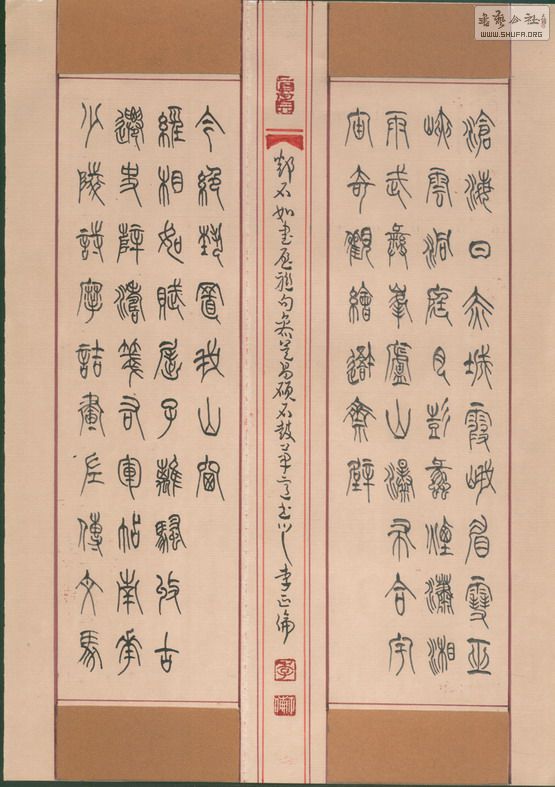 滄海日赤城霞峨眉雪巫
峽雲洞庭月彭蠡煙瀟湘
雨武彝峯廬山瀑布合宇
宙奇觀繪吾齋壁
鄧石如書屋聯句參吳昌碩石鼓筆意書之 李正倫
少陵詩摩詰畫左傳文馬
遷史薛濤箋右軍帖南華
經相如賦屈子離騷收古
今絕藝置我山窗
書藝公社
WWW.SHUFA.ORG